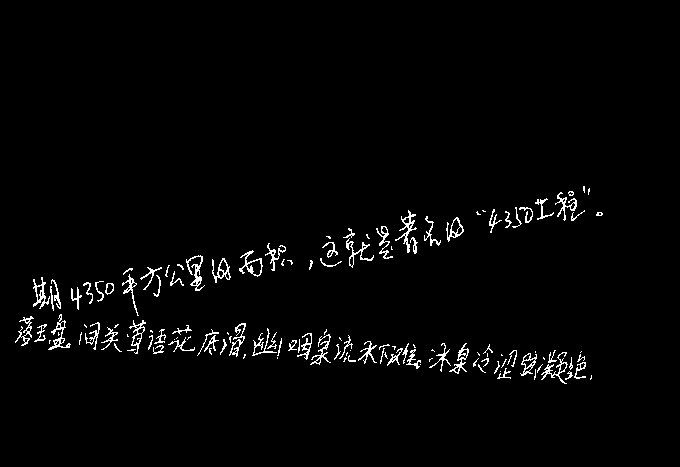 期4350平方公里的面积，这就是著名的“4350工程”。
落玉盘。间关莺语花底滑，幽咽泉流水下难。冰泉冷涩弦凝绝，